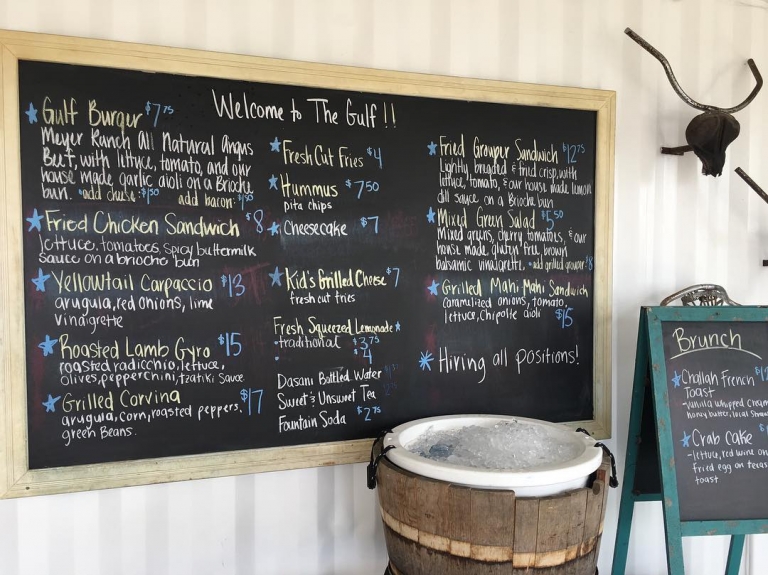 Welcome to The Gulf!!
Gulf Burger $7.75
Meyer Ranch All Natural Angus
Beef, with lettuce, tomato, and our
house made garlic aioli on a Brioche
bun. add cheese: $1.50 add bacon: $1.50
Fried Chicken Sandwich $8
lettuce, tomatoes, spicy buttermilk
sauce on a brioche bun
Yellowtail Carpaccio $13
arugula, red onions, lime
vinaigrette
Roasted Lamb Gyro $15
roasted radicchio, lettuce,
olives, pepperchini, tzatiki sauce
Grilled Corvina $17
arugula, corn, roasted peppers,
green beans.
Fresh Cut Fries $4
Hummus $7.50
pita chips
Cheesecake $7
Kid's Grilled Cheese $7
fresh cut fries
Fresh Squeezed Lemonade
·traditional $3.75
· $4
Dasani Bottled Water
Sweet & Unsweet Tea
Fountain Soda $2.75
Fried Grouper Sandwich $12.75
Lightly breaded & fried crisp, with
lettuce, tomato, & our house made lemon
dill sauce on a Brioche bun
Mixed Green Salad $5.50
Mixed greens, cherry tomatoes, & our
house made gluten free, brown
balsamic vinaigrette. ·add grilled grouper: $8
Grilled Mahi Mahi Sandwich
caramelized onions, tomato,
lettuce, chipotle aioli $15
Hiring all positions!
Brunch
Challah French
Toast
-vanilla whipped cream
honey butter, local
Crab Cake
-lettuce, red wine
fried egg on texas
toast